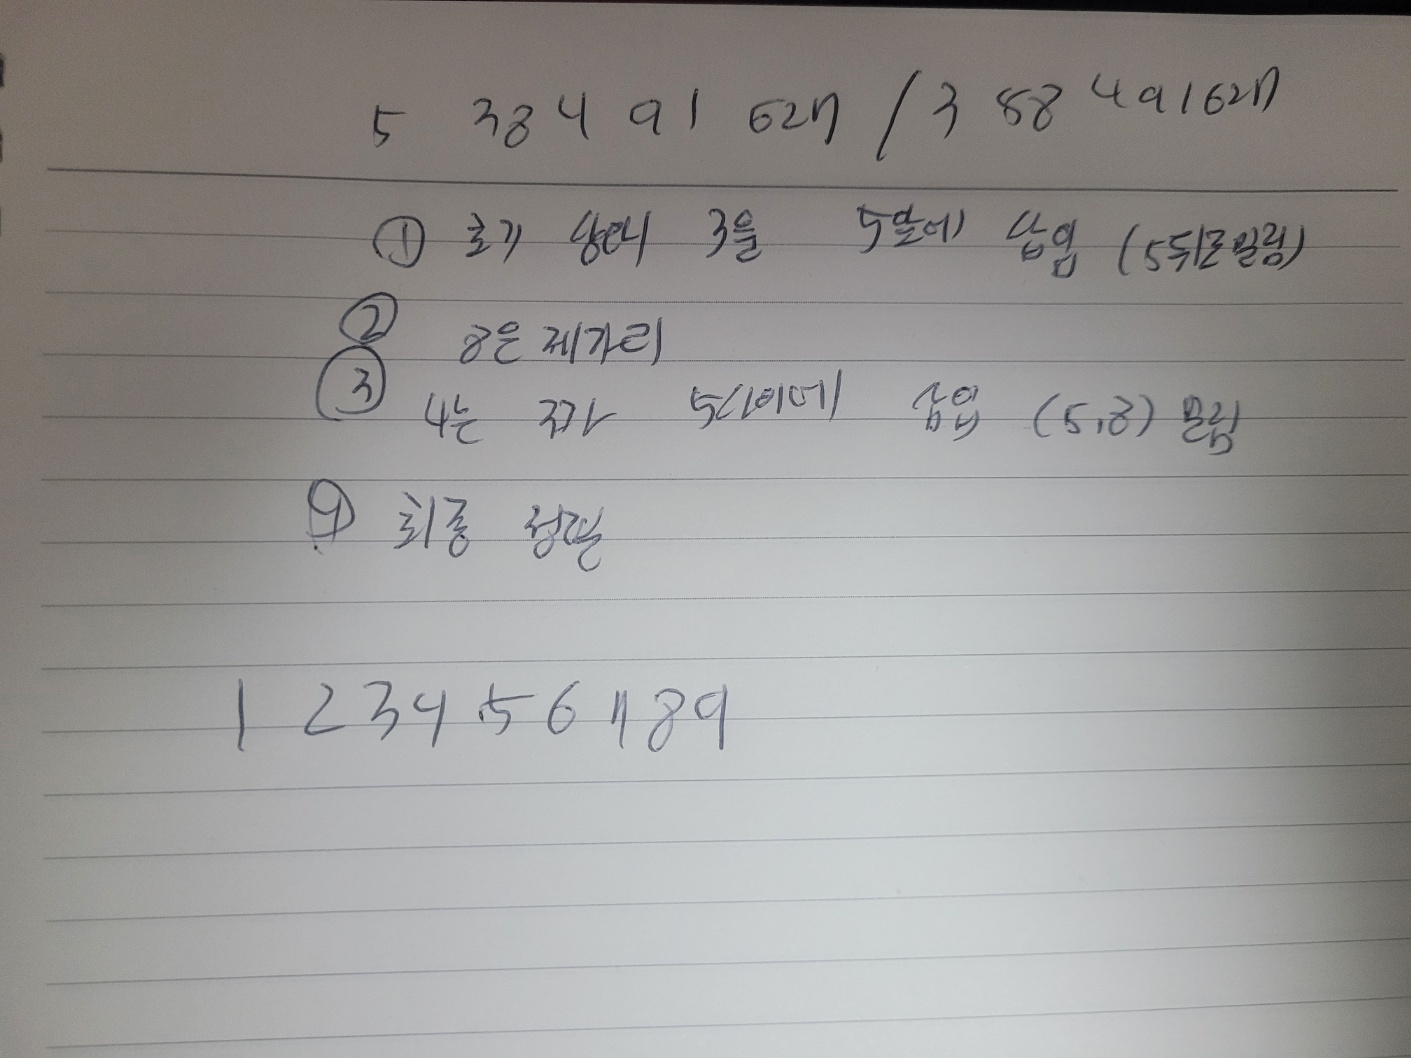 5 3 8 4 9 1 6 2 7 / 3 5 8 8 4 9 1 6 2 7
① 초기 상태 3을 5앞에 삽입 (5뒤로밀림)
② 8은 제자리
③ 4는 3과 5사이에 삽입 (5,8) 밀림
④ 최종 정렬
1 2 3 4 5 6 7 8 9